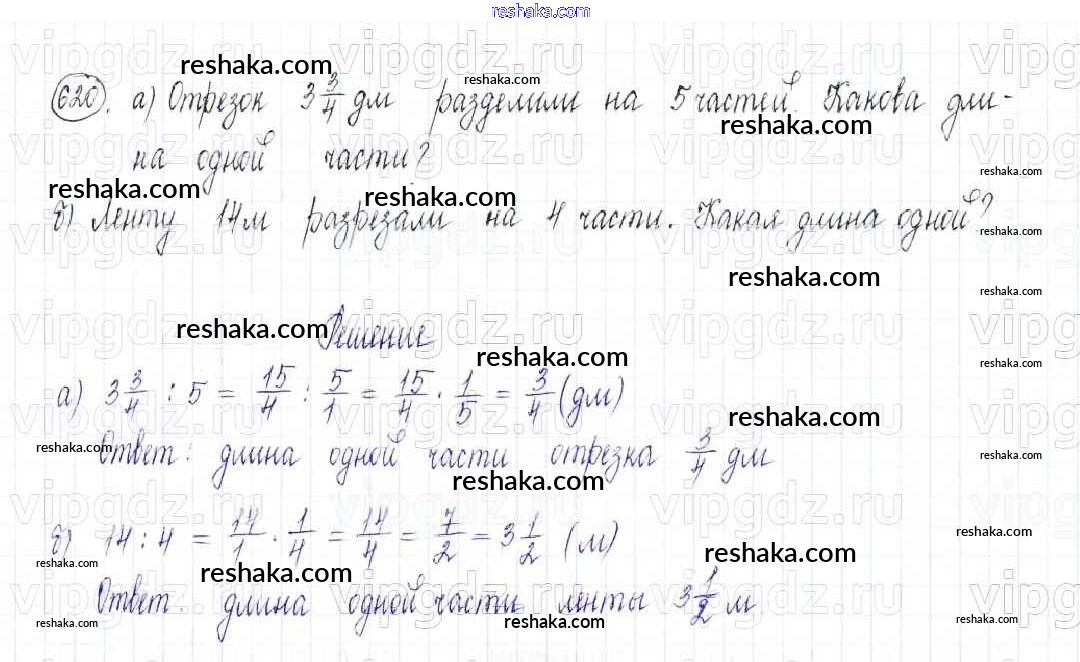 reshaka.com
620. а) Отрезок 3 3/4 дм разделили на 5 частей. Какова дли-
на одной части?
б) Ленту 14 м разрезали на 4 части. Какая длина одной?
Решение
а) 3 3/4 : 5 = 15/4 : 5/1 = 15/4 · 1/5 = 3/4 (дм)
Ответ: длина одной части отрезка 3/4 дм
б) 14 : 4 = 14/1 · 1/4 = 14/4 = 7/2 = 3 1/2 (м)
Ответ: длина одной части ленты 3 1/2 м
vipgdz.ru
reshaka.com